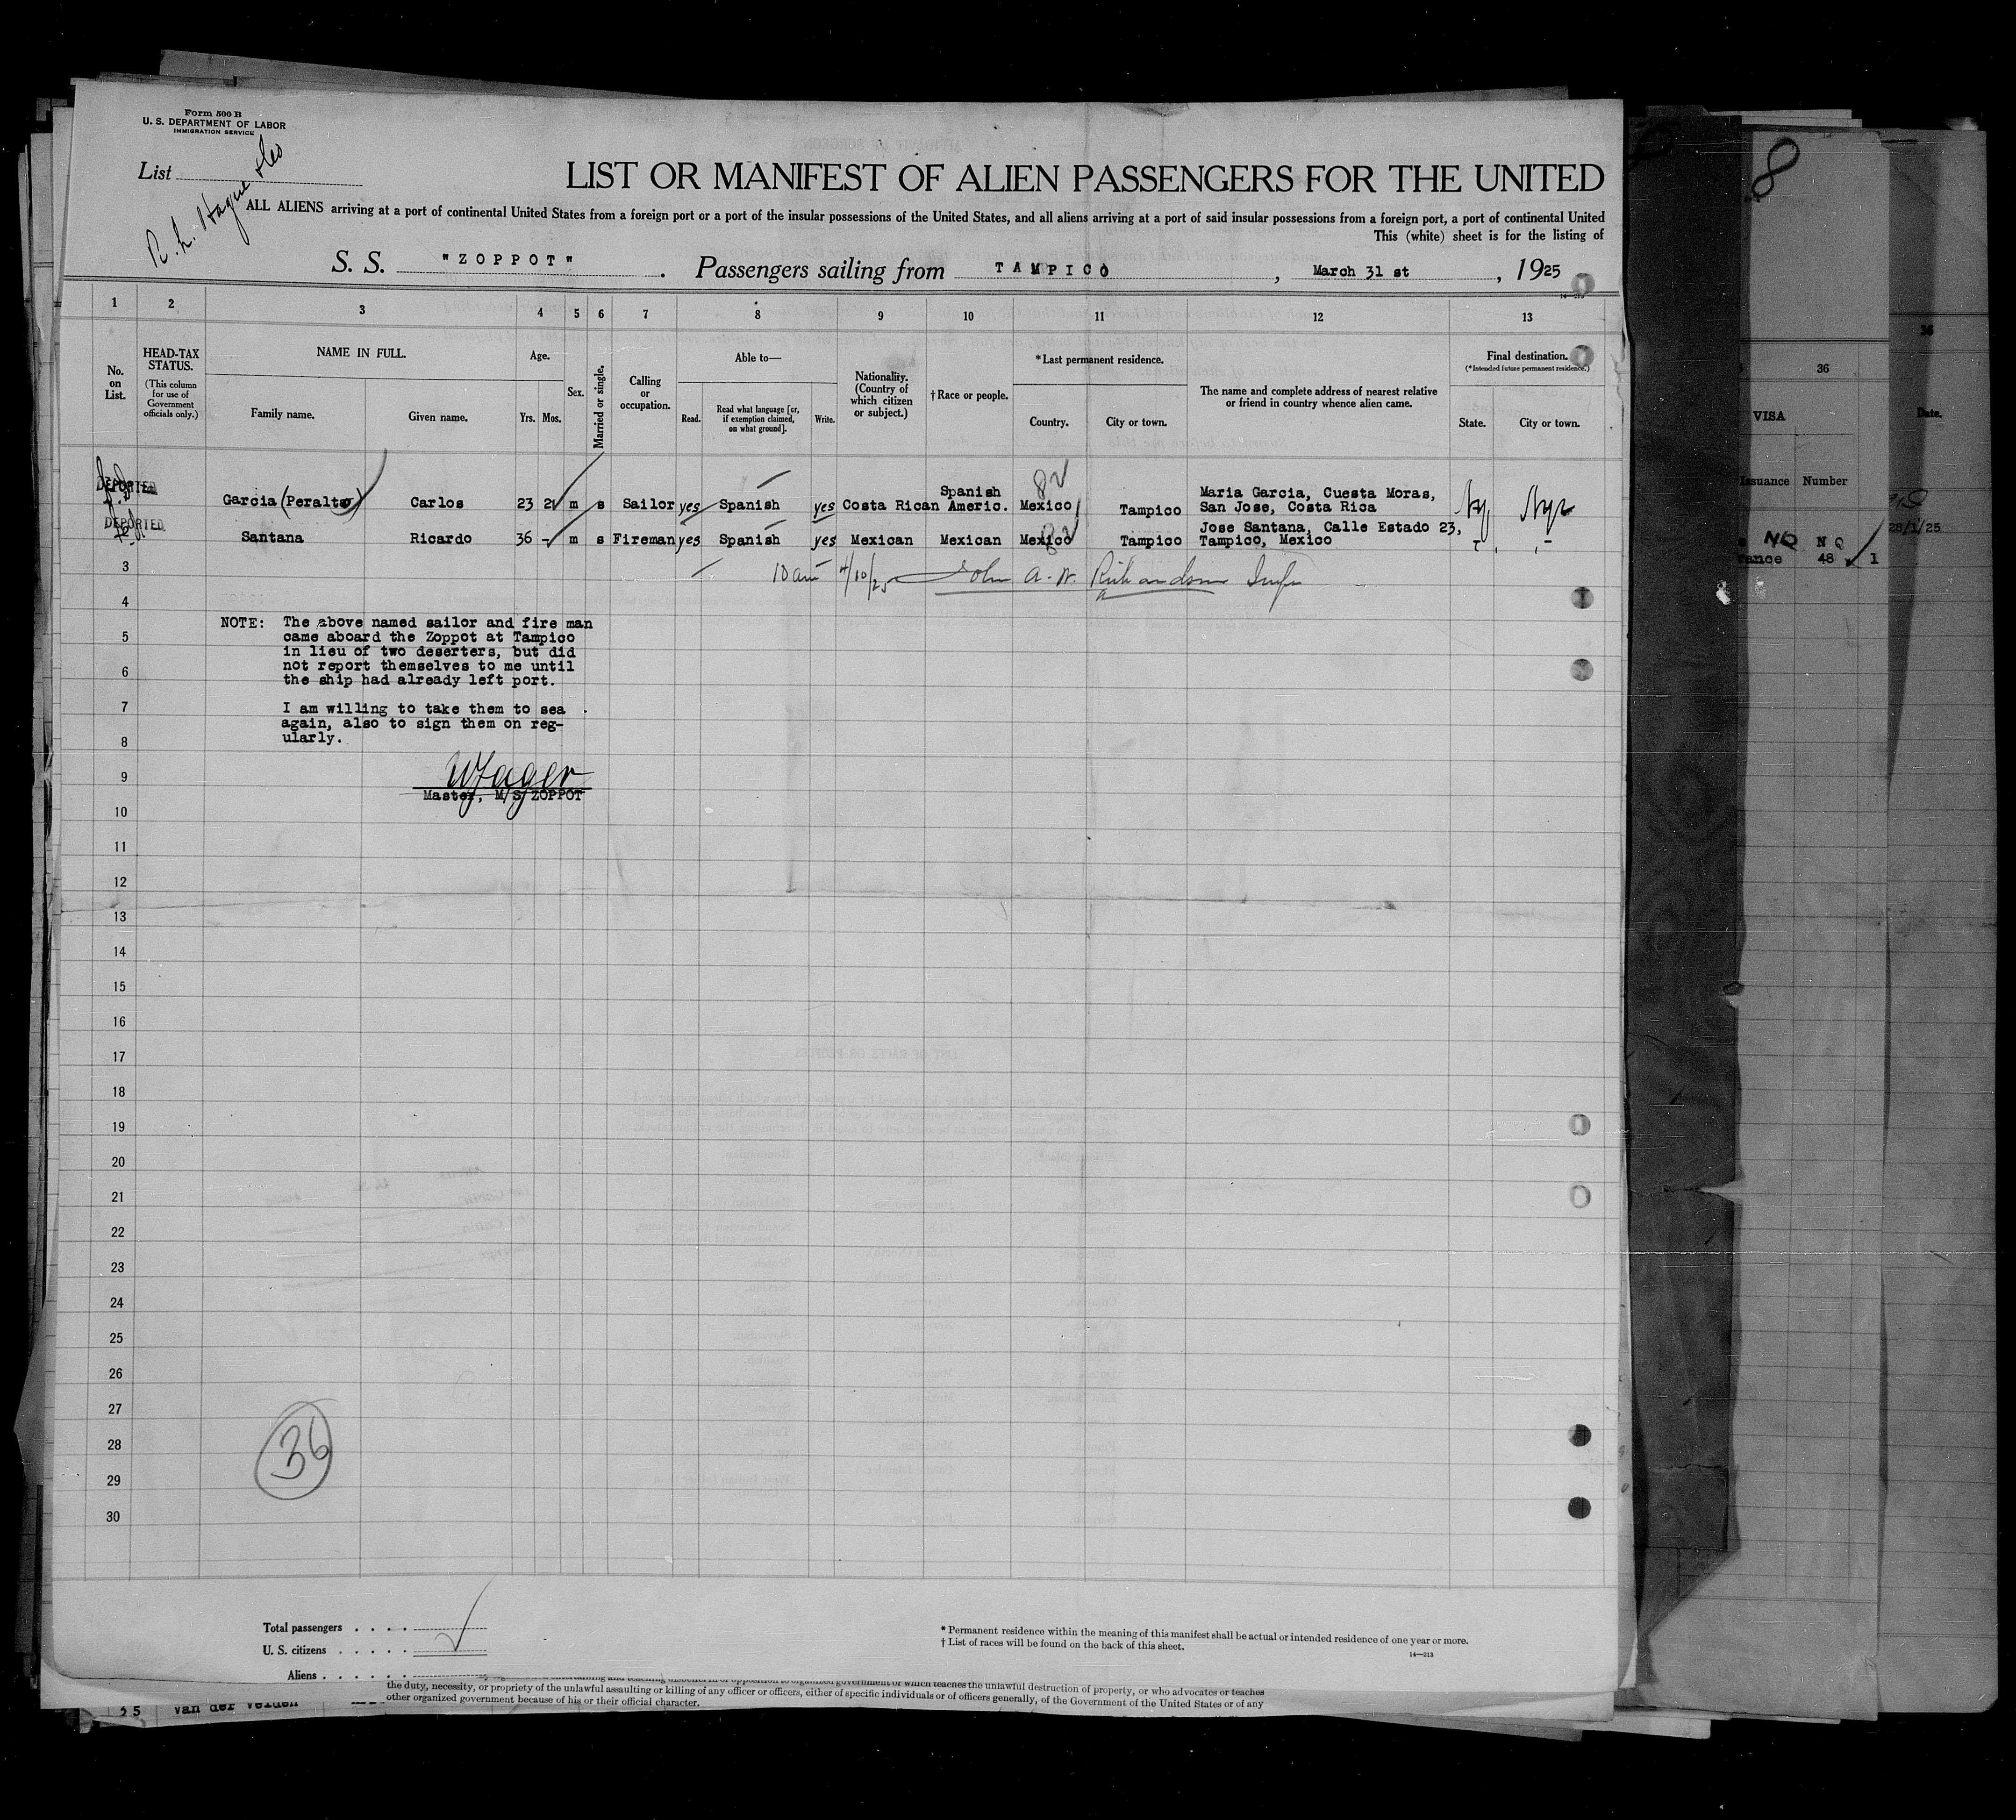 Form 500 B
U. S. DEPARTMENT OF LABOR
IMMIGRATION SERVICE
List
R. L. Hague
LIST OR MANIFEST OF ALIEN PASSENGERS FOR THE UNITED
ALL ALIENS arriving at a port of continental United States from a foreign port or a port of the insular possessions of the United States, and all aliens arriving at a port of said insular possessions from a foreign port, a port of continental United
This (white) sheet is for the listing of
S. S. "ZOPPOT". Passengers sailing from TAMPICO, March 31 st, 1925
14—213
1 2 3 4 5 6 7 8 9 10 11 12 13
No. on List.
HEAD-TAX STATUS.
(This column for use of Government officials only.)
NAME IN FULL.
Family name. Given name.
Age.
Yrs. Mos.
Sex.
Married or single.
Calling or occupation.
Able to—
Read. Read what language [or, if exemption claimed, on what ground]. Write.
Nationality. (Country of which citizen or subject.)
† Race or people.
* Last permanent residence.
Country. City or town.
The name and complete address of nearest relative or friend in country whence alien came.
Final destination.
(* Intended future permanent residence.)
State. City or town.
82
DEPORTED Garcia (Peralto) Carlos 23 2 m s Sailor yes Spanish yes Costa Rican Spanish Americ. Mexico Tampico Maria Garcia, Cuesta Moras, San Jose, Costa Rica Ny Nyc
DEPORTED Santana Ricardo 36 - m s Fireman yes Spanish yes Mexican Mexican Mexico Tampico Jose Santana, Calle Estado 23, Tampico, Mexico
3
10 am 4/10/25 John A. W. Richardson
4
NOTE: The above named sailor and fire man
5
came aboard the Zoppot at Tampico
in lieu of two deserters, but did
6
not report themselves to me until
the ship had already left port.
7
I am willing to take them to sea
again, also to sign them on reg-
8
ularly.
9
WJager
Master, M/S ZOPPOT
10
11
12
13
14
15
16
17
18
19
20
21
22
23
24
25
26
27
28
29
30
36
Total passengers
U. S. citizens
Aliens
* Permanent residence within the meaning of this manifest shall be actual or intended residence of one year or more.
† List of races will be found on the back of this sheet.
14—213
the duty, necessity, or propriety of the unlawful assaulting or killing of any officer or officers, either of specific individuals or of officers generally, of the Government of the United States or of any
other organized government because of his or their official character.
35 van der Velden
8
36
36
VISA
Date.
Issuance Number
28/1/25
NQ NQ
48 1